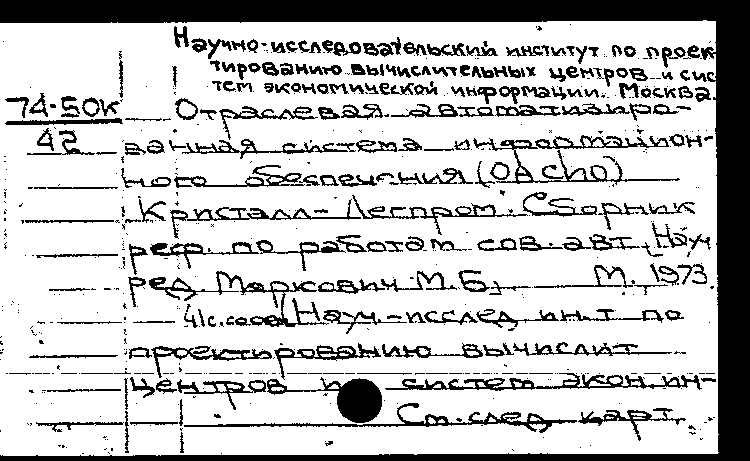 Научно-исследовательский институт по проек-
тированию вычислительных центров и сис-
тем экономической информации. Москва.
74-50к Отраслевая автоматизиро-
42 ванная система информацион-
ного обеспечения (ОАСИО)
Кристалл-Леспром. Сборник
реф. по работам сов. авт. [Науч.
ред. Маркович М.Б.] М., 1973.
41с. (Науч.-исслед. ин.т по
проектированию вычислит.
центров и систем экон. ин-
См. след. карт.